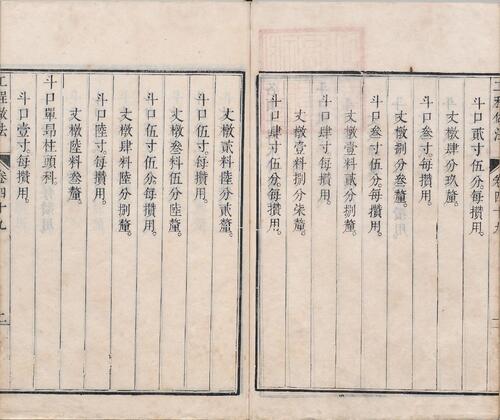 工程做法
卷四十九
斗口貳寸伍分每攢用。
丈檄肆分玖釐。
斗口叁寸每攢用。
丈檄捌分叁釐。
斗口叁寸伍分每攢用。
丈檄壹料貳分捌釐。
斗口肆寸每攢用。
丈檄壹料捌分柒釐。
斗口肆寸伍分每攢用。
丈檄貳料陸分貳釐。
斗口伍寸每攢用。
丈檄叁料伍分陸釐。
斗口伍寸伍分每攢用。
丈檄肆料陸分捌釐。
斗口陸寸每攢用。
丈檄陸料叁釐。
斗口單昂柱頭科。
斗口壹寸每攢用。
工程做法
卷四十九
二